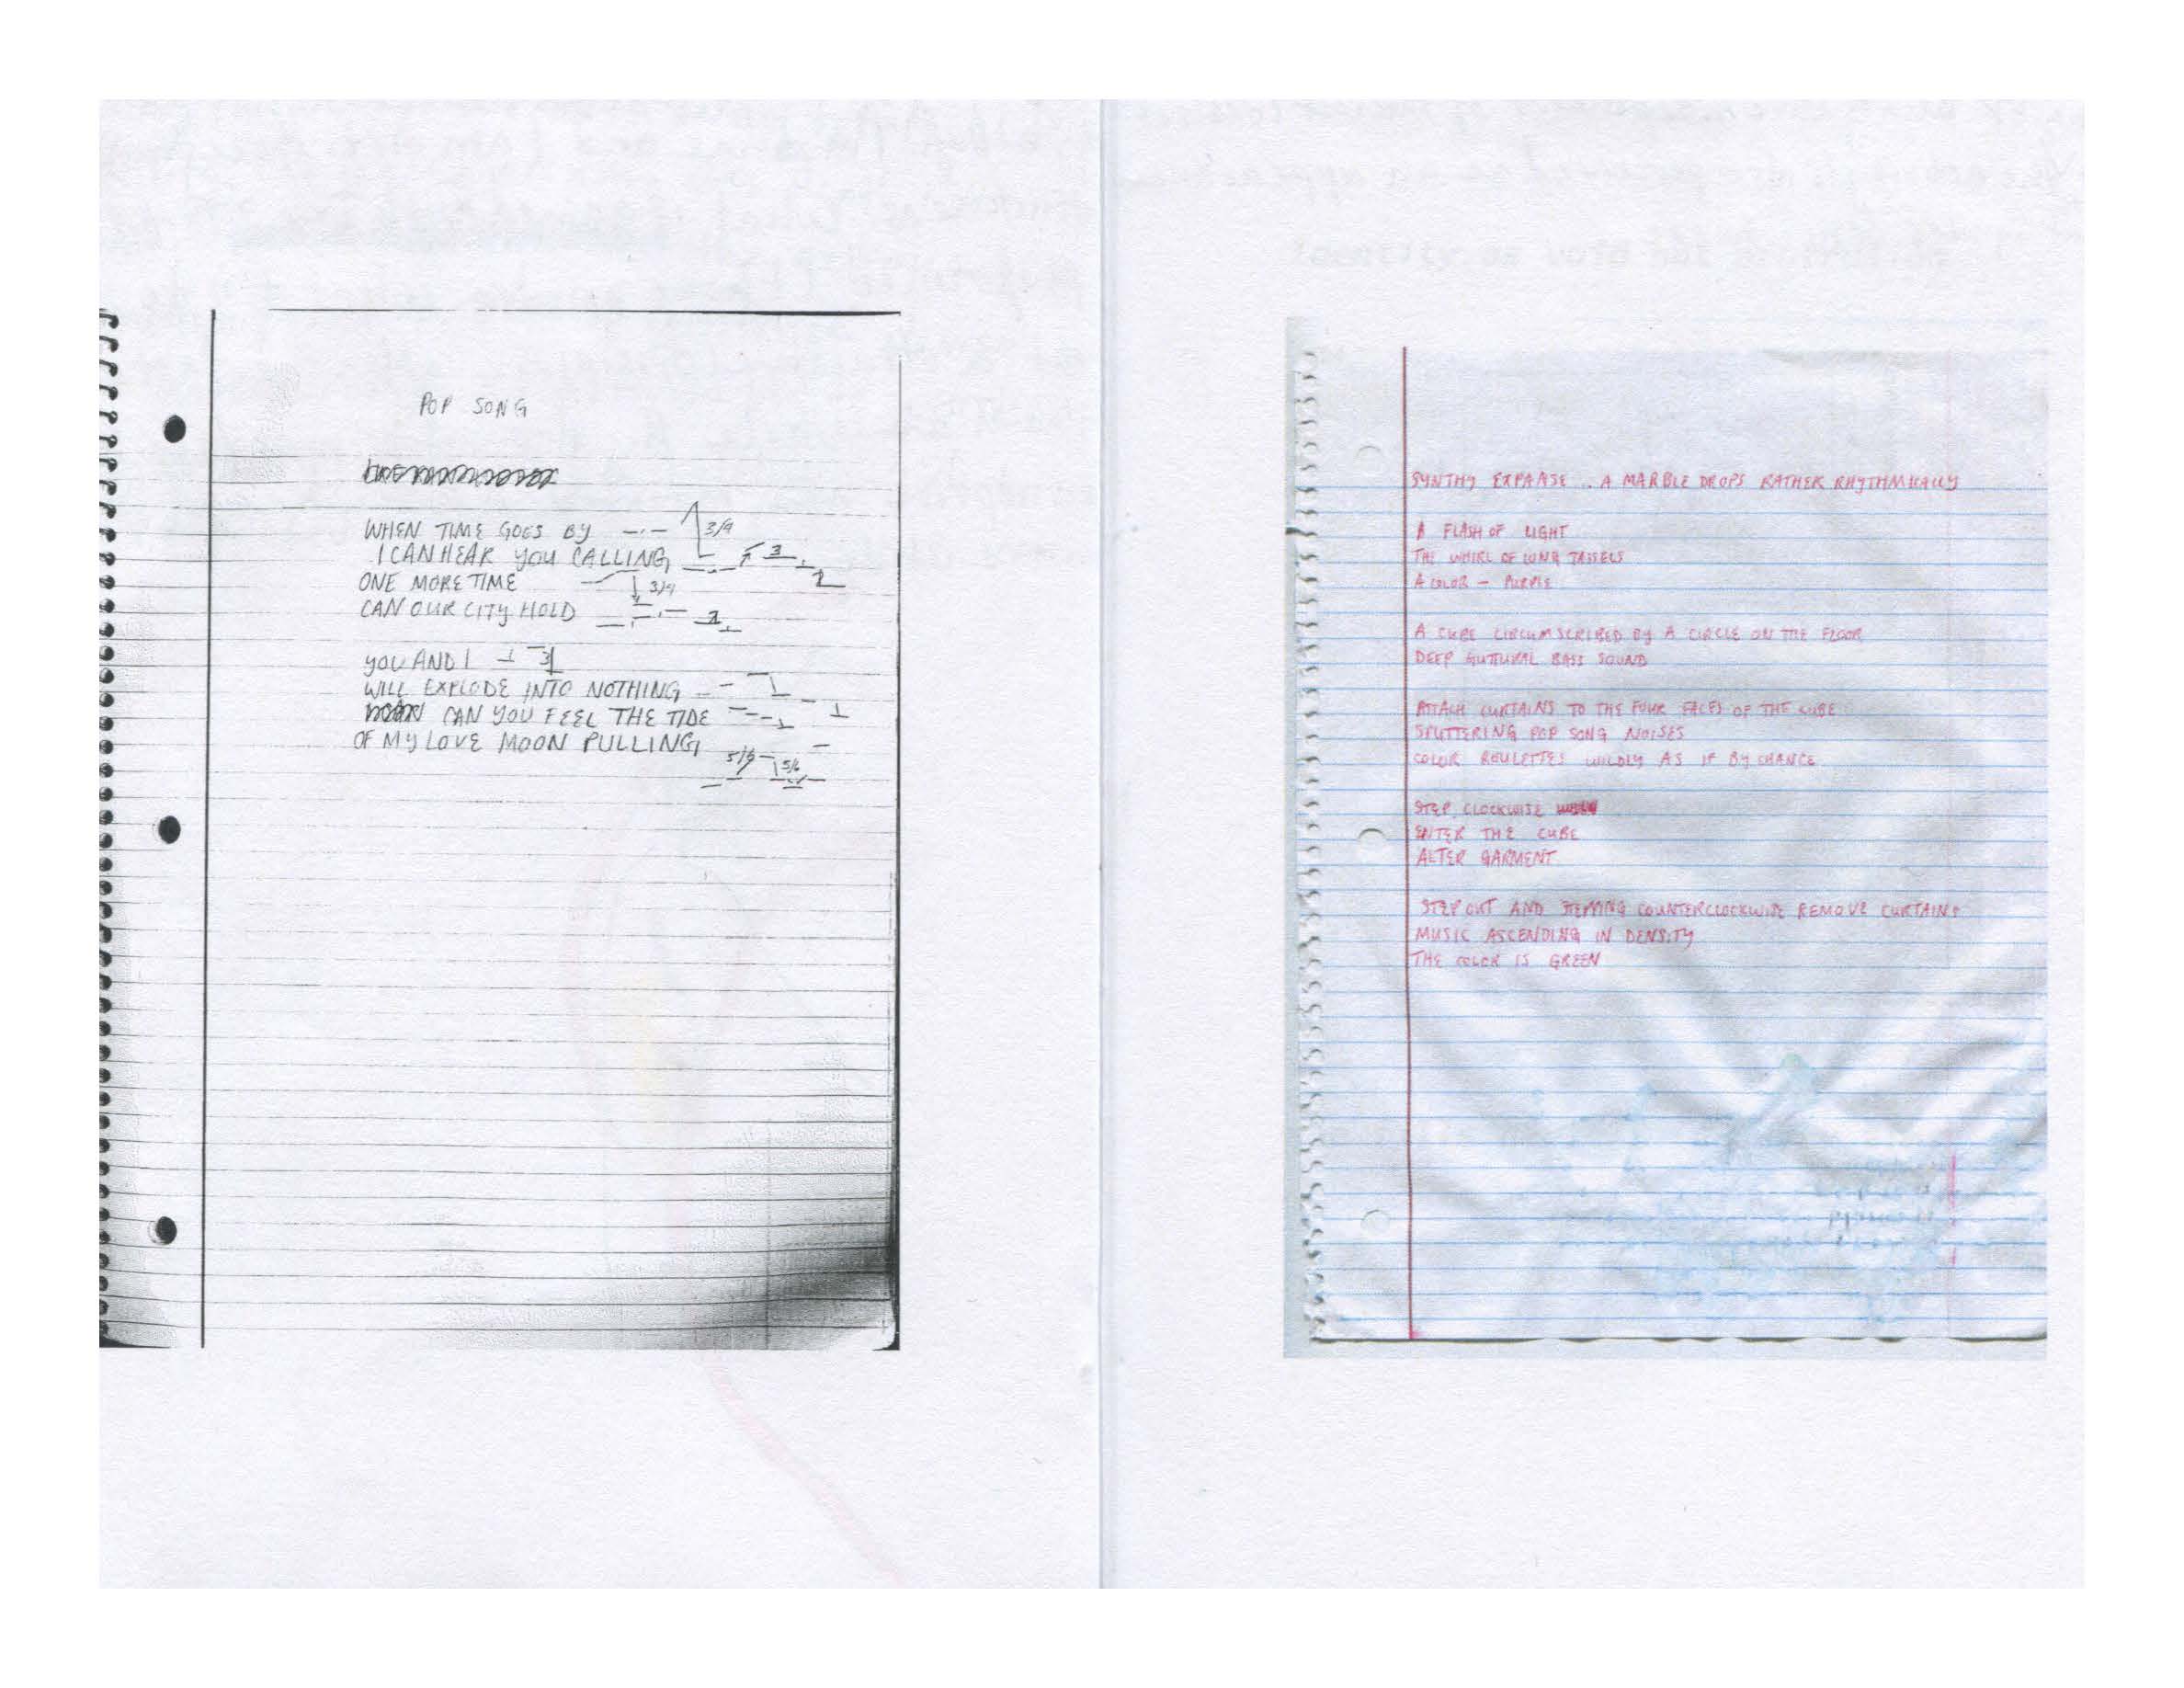 POP SONG
WHEN TIME GOES BY
3/9
I CAN HEAR YOU CALLING
3
2
ONE MORE TIME
3/9
CAN OUR CITY HOLD
2
YOU AND I
3
WILL EXPLODE INTO NOTHING
CAN YOU FEEL THE TIDE
OF MY LOVE MOON PULLING
5/6
5/6
SYNTHY EXPANSE .. A MARBLE DROPS RATHER RHYTHMICALLY
A FLASH OF LIGHT
THE WHIRL OF LONG TASSELS
A COLOR - PURPLE
A CUBE CIRCUMSCRIBED BY A CIRCLE ON THE FLOOR
DEEP GUTTURAL BASS SOUND
ATTACH CURTAINS TO THE FOUR FACES OF THE CUBE
SPUTTERING POP SONG NOISES
COLOR ROULETTES WILDLY AS IF BY CHANCE
STEP CLOCKWISE
ENTER THE CUBE
ALTER GARMENT
STEP OUT AND STEPPING COUNTERCLOCKWISE REMOVE CURTAINS
MUSIC ASCENDING IN DENSITY
THE COLOR IS GREEN